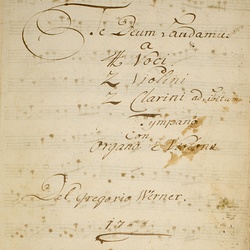 Te Deum Laudamus
a
4 Voci
2 Violini
2 Clarini ad libitum
Tympano
con
Organo e Violone
Del Gregorio Werner.
17